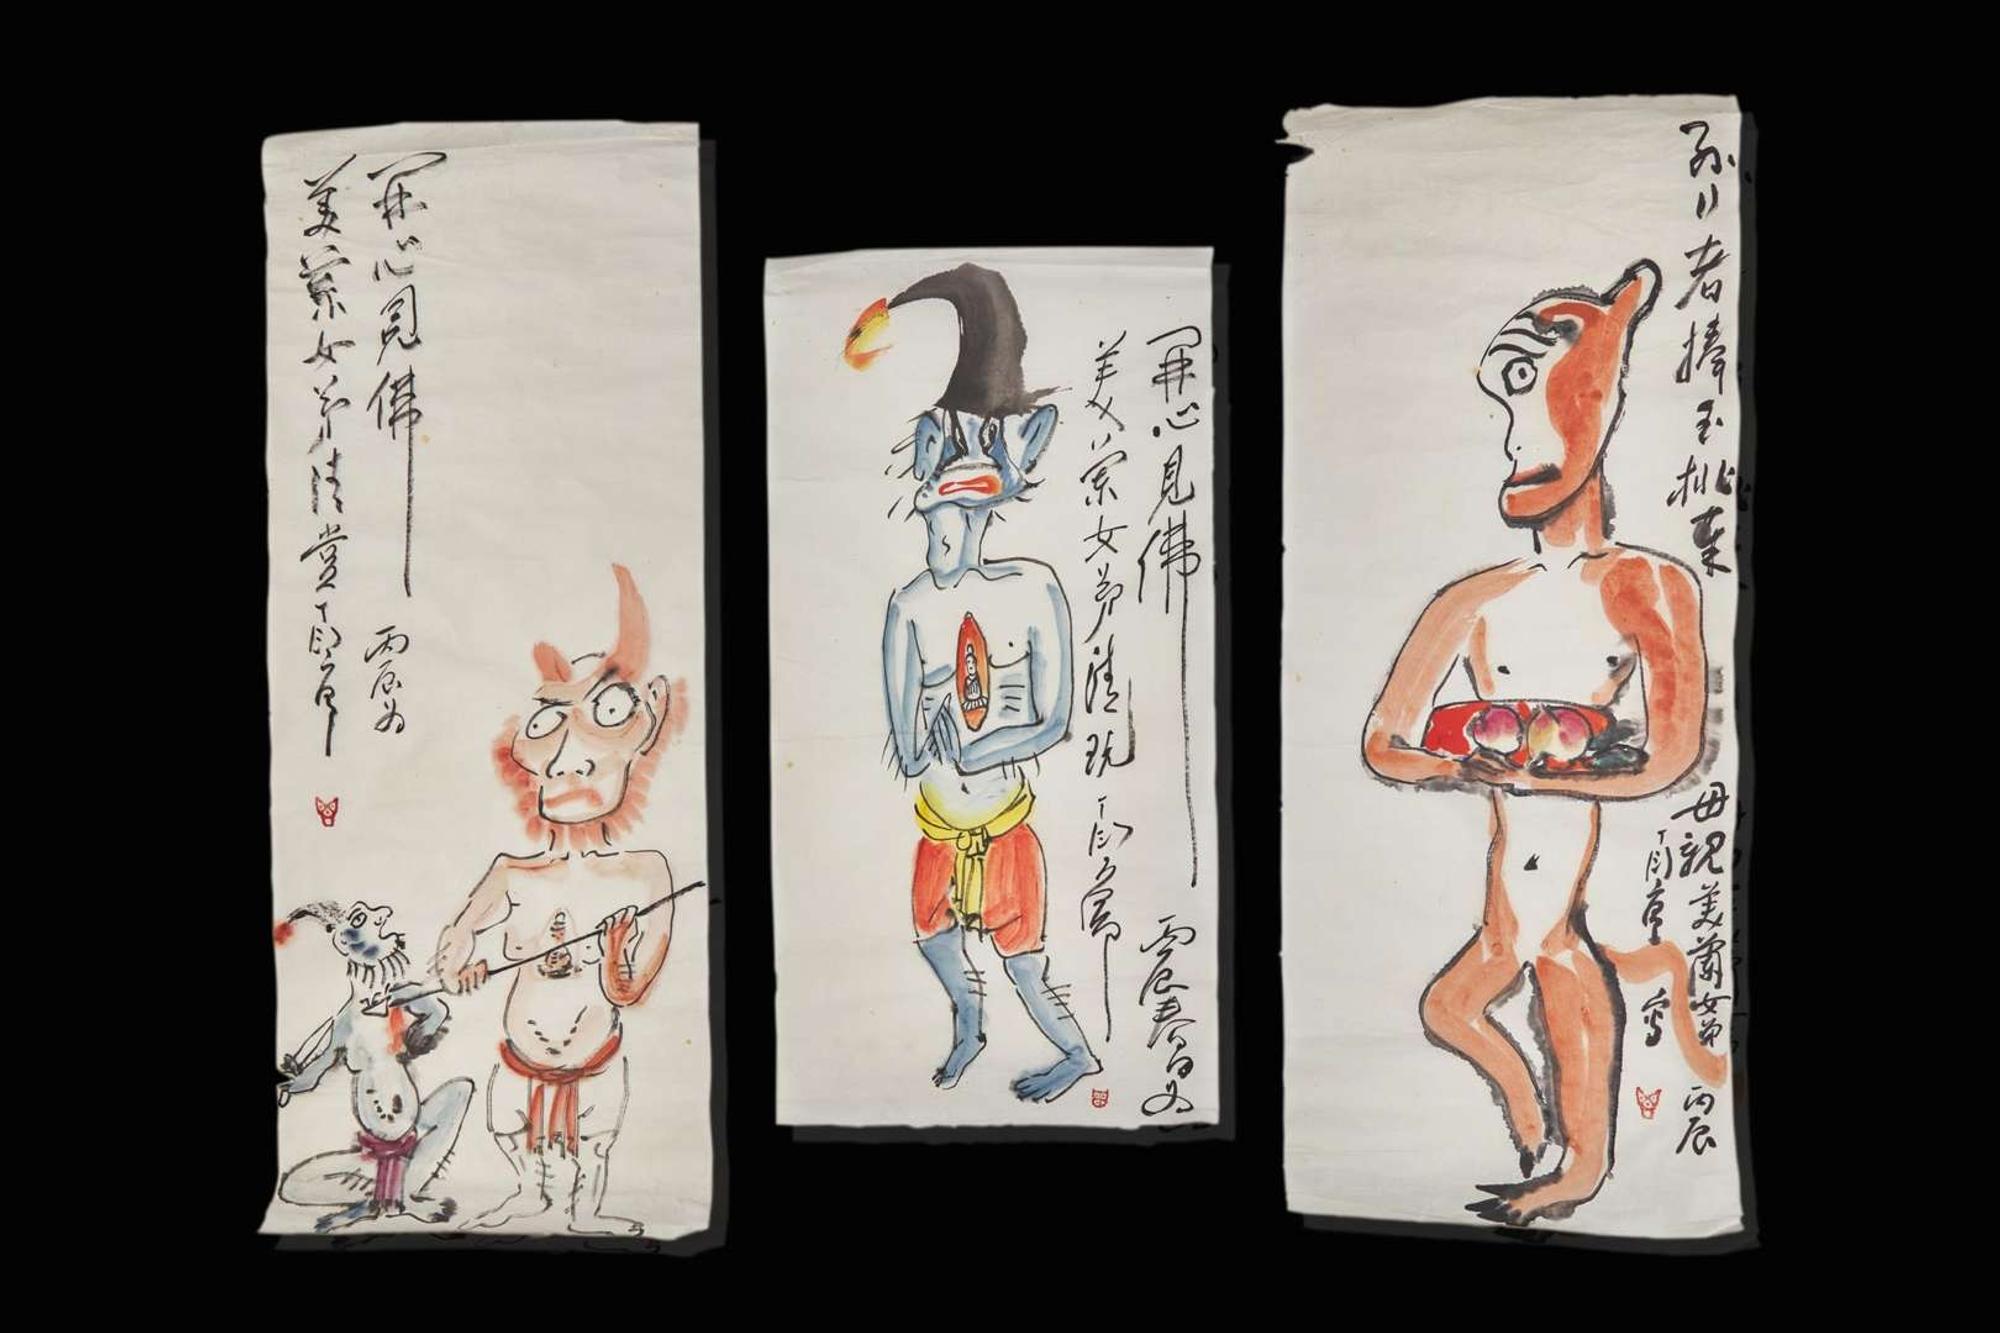 開心見佛 丙辰为
美蘭女弟清賞 丁衍庸
開心見佛 丙辰春日为
美蘭女弟清玩 丁衍庸
孙行者捧玉桃来
母親 美蘭女弟 丙辰
丁衍庸寫